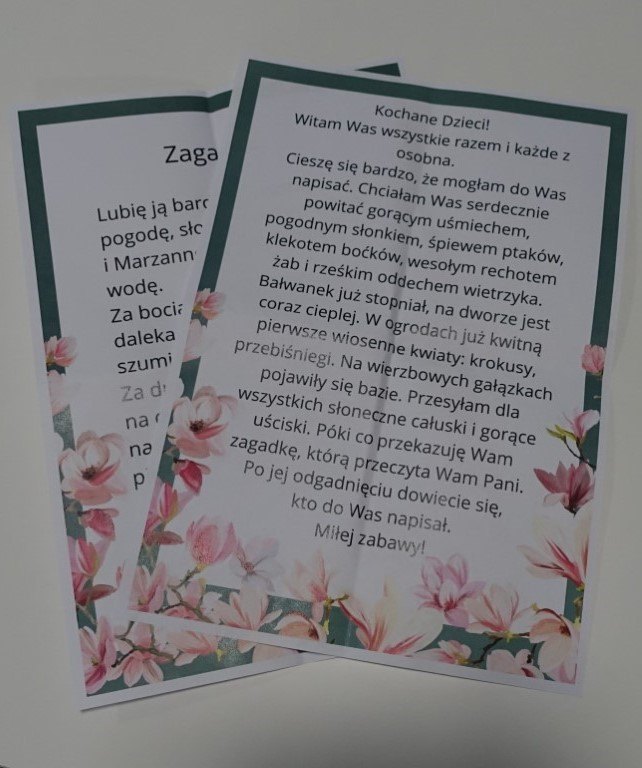 Kochane Dzieci!
Witam Was wszystkie razem i każde z
osobna.
Cieszę się bardzo, że mogłam do Was
napisać. Chciałam Was serdecznie
powitać gorącym uśmiechem,
pogodnym słonkiem, śpiewem ptaków,
klekotem boćków, wesołym rechotem
żab i rześkim oddechem wietrzyka.
Bałwanek już stopniał, na dworze jest
coraz cieplej. W ogrodach już kwitną
pierwsze wiosenne kwiaty: krokusy,
przebiśniegi. Na wierzbowych gałązkach
pojawiły się bazie. Przesyłam dla
wszystkich słoneczne całuski i gorące
uściski. Póki co przekazuję Wam
zagadkę, którą przeczyta Wam Pani.
Po jej odgadnięciu dowiecie się,
kto do Was napisał.
Miłej zabawy!
Zaga
Lubię ją bar
pogodę, sło
i Marzann
wodę.
Za bocia
daleka
szumi
Za d
na
na
p